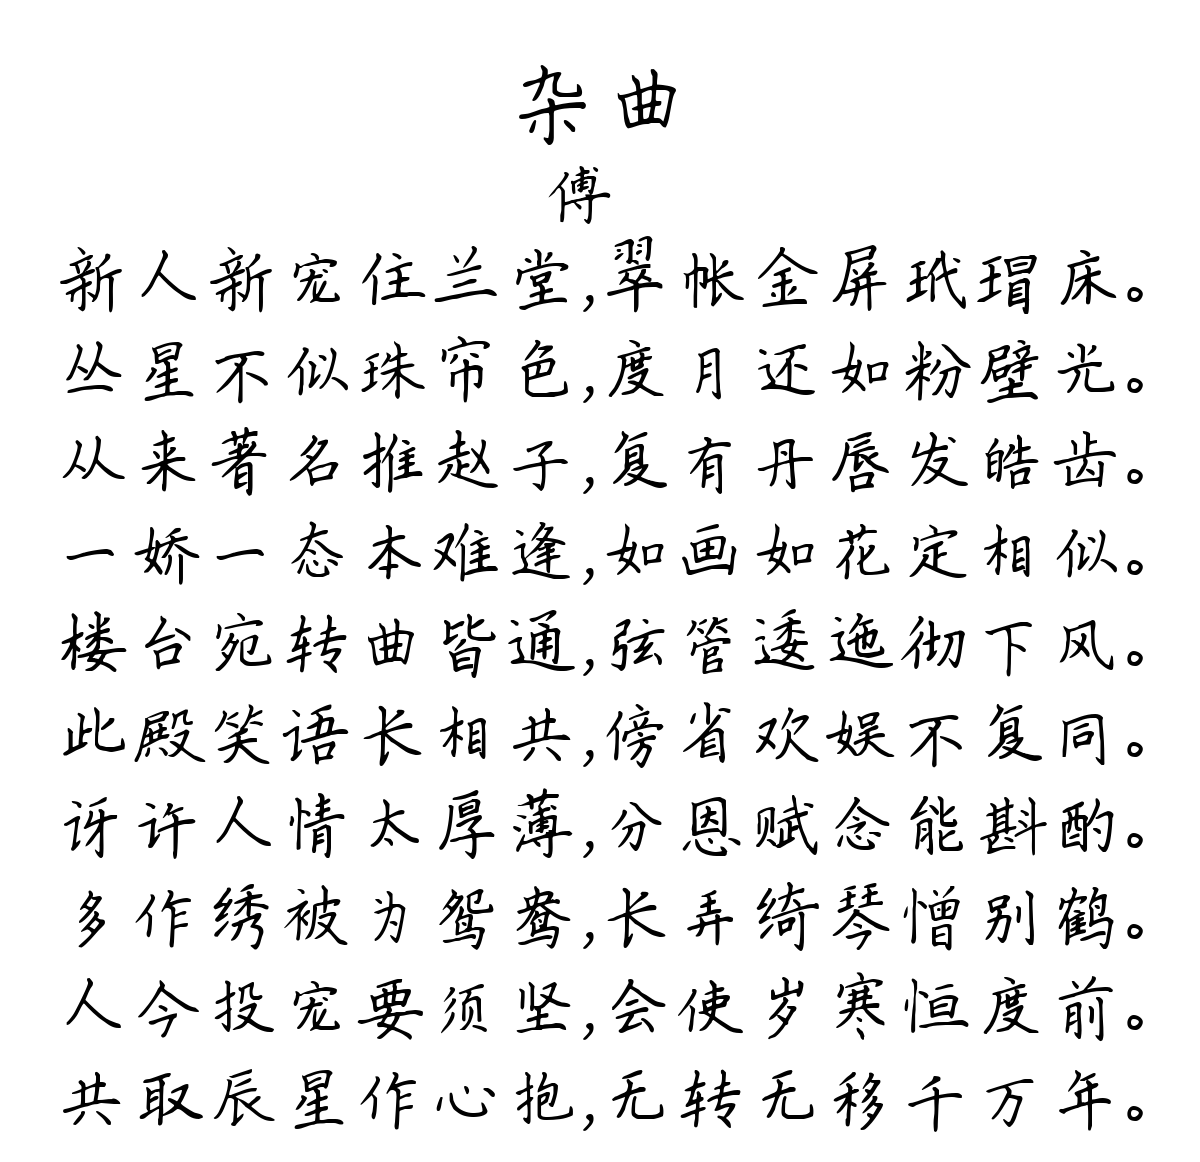 杂曲
傅
新人新宠住兰堂,翠帐金屏玳瑁床。
丛星不似珠帘色,度月还如粉壁光。
从来著名推赵子,复有丹唇发皓齿。
一娇一态本难逢,如画如花定相似。
楼台宛转曲皆通,弦管逶迤彻下风。
此殿笑语长相共,傍省欢娱不复同。
讶许人情太厚薄,分恩赋念能斟酌。
多作绣被为鸳鸯,长弄绮琴憎别鹤。
人今投宠要须坚,会使岁寒恒度前。
共取辰星作心抱,无转无移千万年。